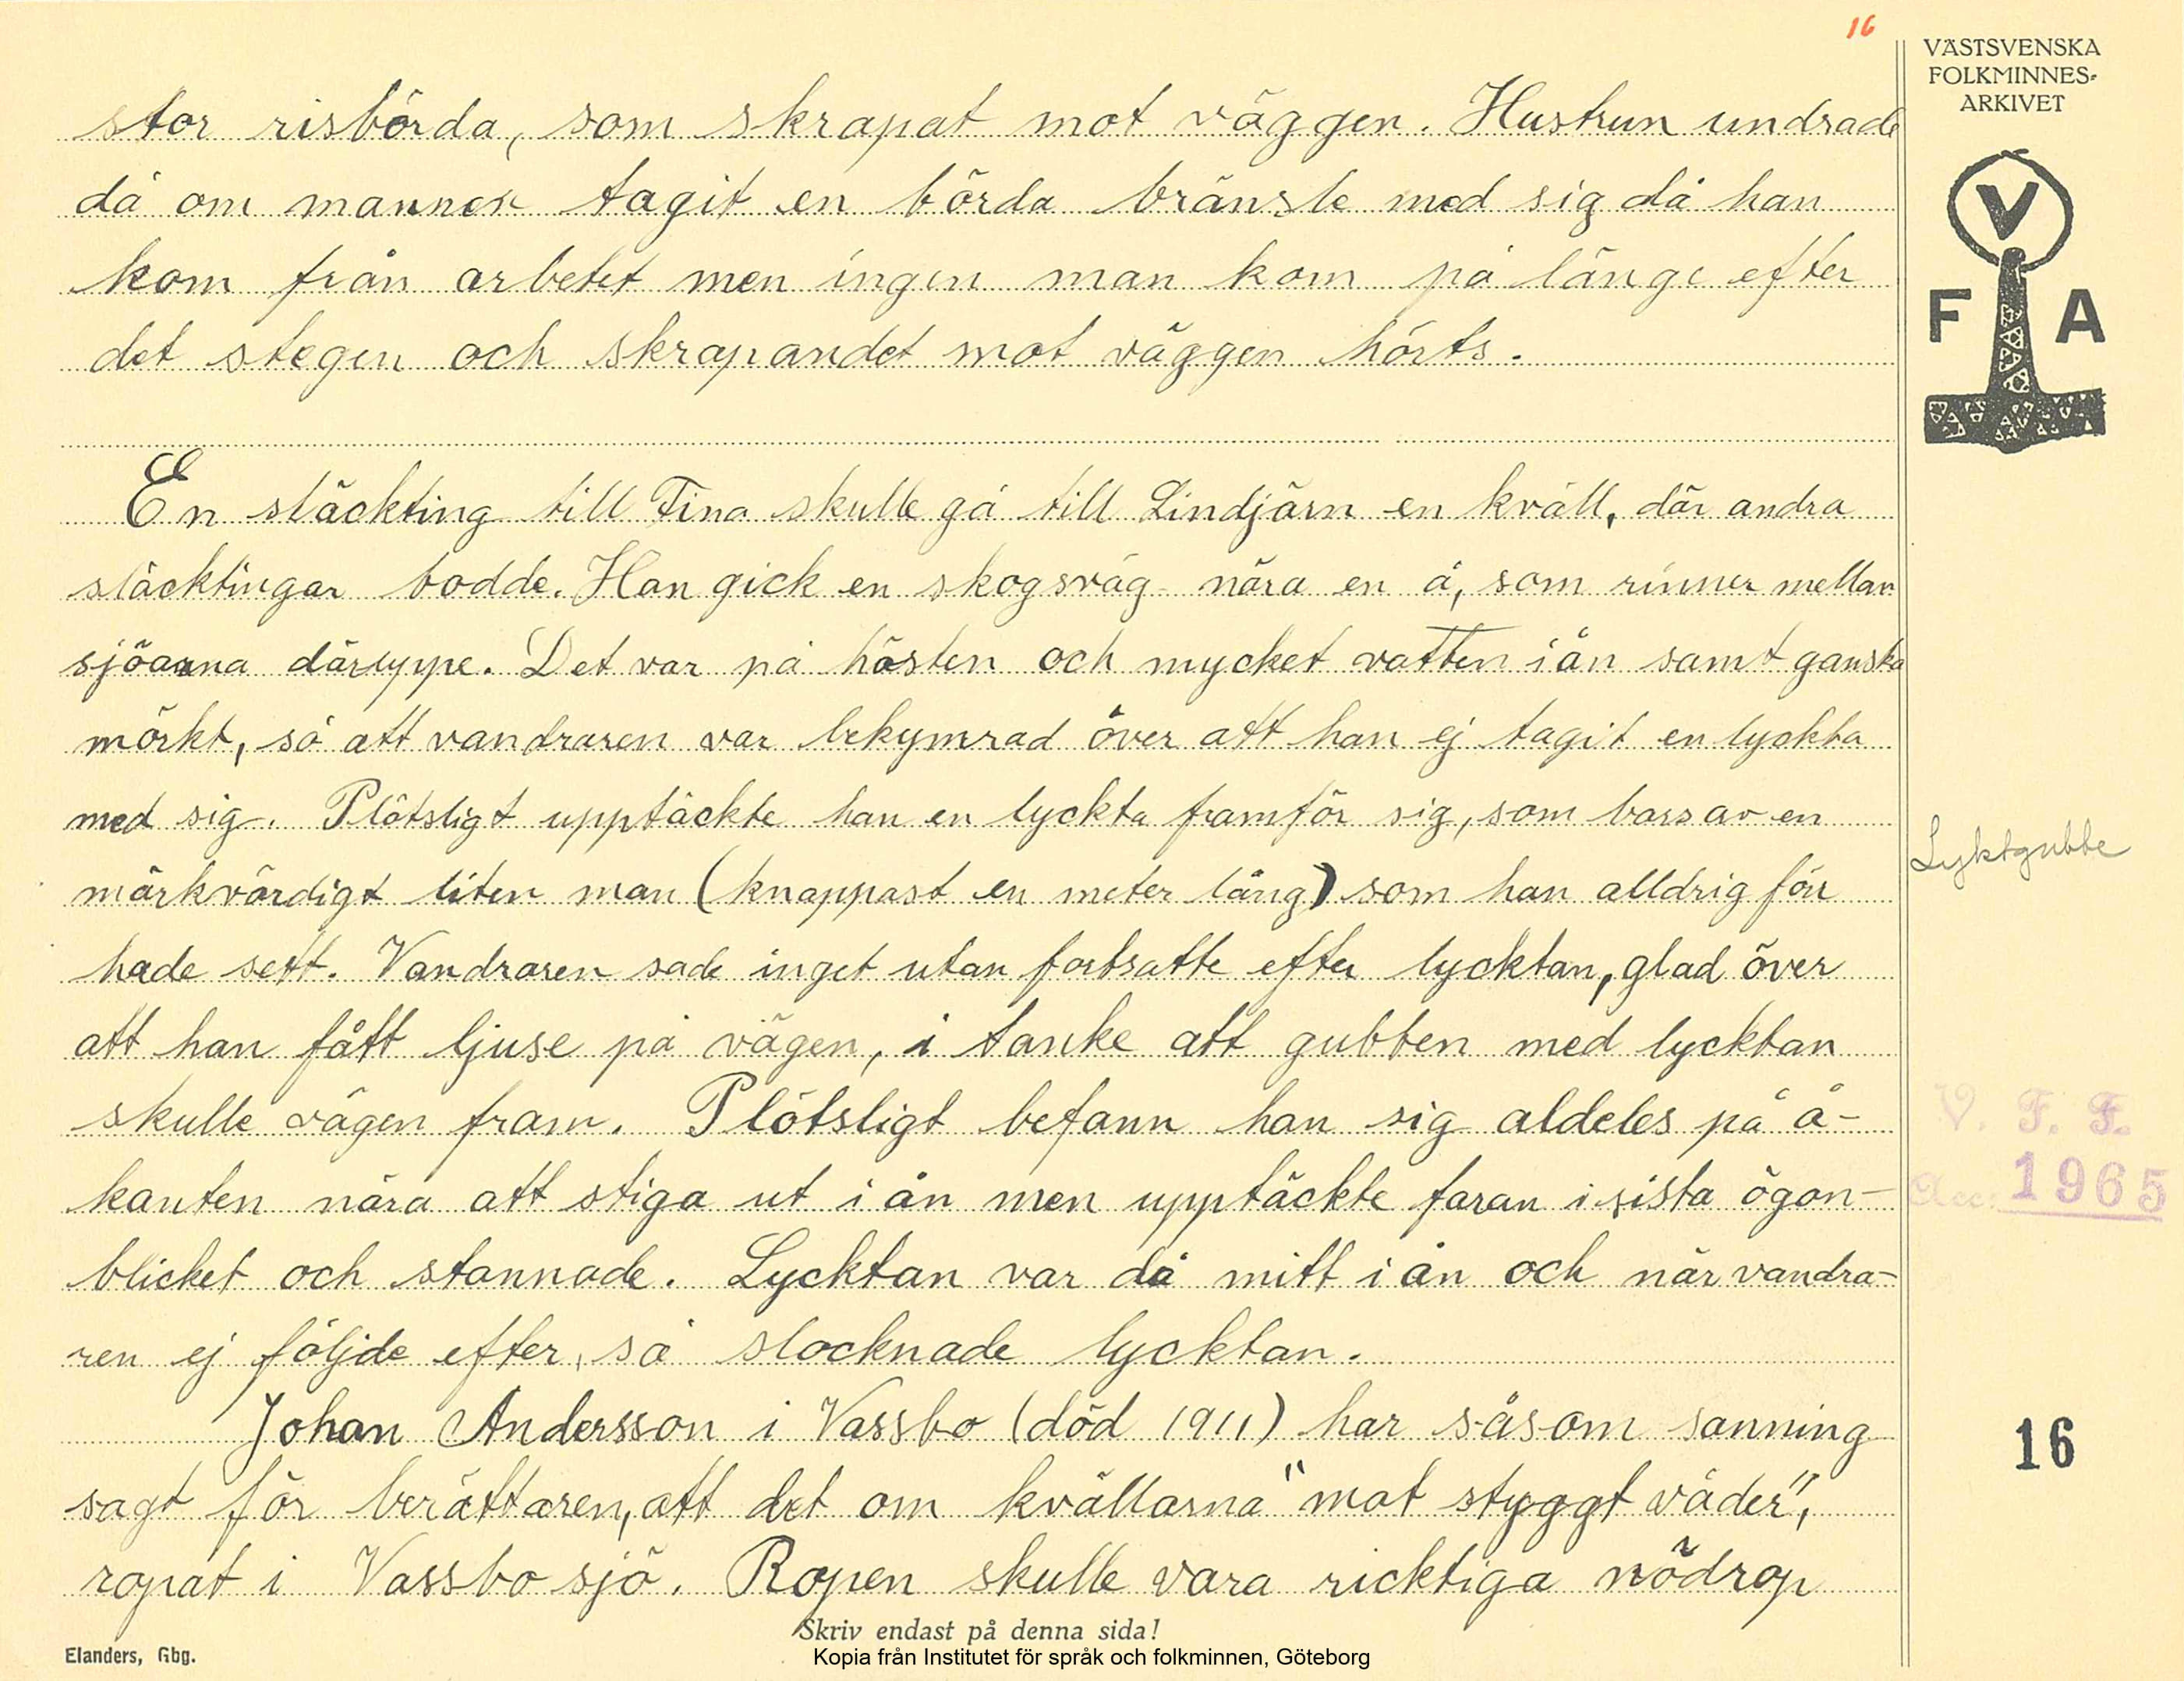 16
VÄSTSVENSKA
FOLKMINNES-
ARKIVET
V
F A
stor risbörda, som skrapat mot väggen. Hustrun undrade
då om mannen tagit en börda bränsle med sig då han
kom från arbetet men ingen man kom på länge efter
det stegen och skrapandet mot väggen hörts.
En släckting till Fina skulle gå till Lindjärn en kväll, där andra
släcktingar bodde. Han gick en skogsväg nära en å, som rinner mellan
sjöarna däruppe. Det var på hösten och mycket vatten i ån samt ganska
mörkt, så att vandraren var bekymrad över att han ej tagit en lyckta
med sig. Plötsligt upptäckte han en lyckta framför sig, som bars av en
märkvärdigt liten man (knappast en meter lång) som han alldrig förr
hade sett. Vandraren sade inget utan fortsatte efter lycktan, glad över
att han fått ljuse på vägen, i tanke att gubben med lycktan
skulle vägen fram. Plötsligt befann han sig aldeles på å-
kanten nära att stiga ut i ån men upptäckte faran i sista ögon-
blicket och stannade. Lycktan var då mitt i ån och när vandra-
ren ej följde efter, så slocknade lycktan.
Johan Andersson i Vassbo (död 1911) har såsom sanning
sagt för berättaren, att det om kvällarna "mot styggt väder",
ropat i Vassbo sjö. Ropen skulle vara ricktiga nödrop
Lyktgubbe
V. F. F.
Acc. 1965
16
Skriv endast på denna sida!
Elanders, Gbg.
Kopia från Institutet för språk och folkminnen, Göteborg